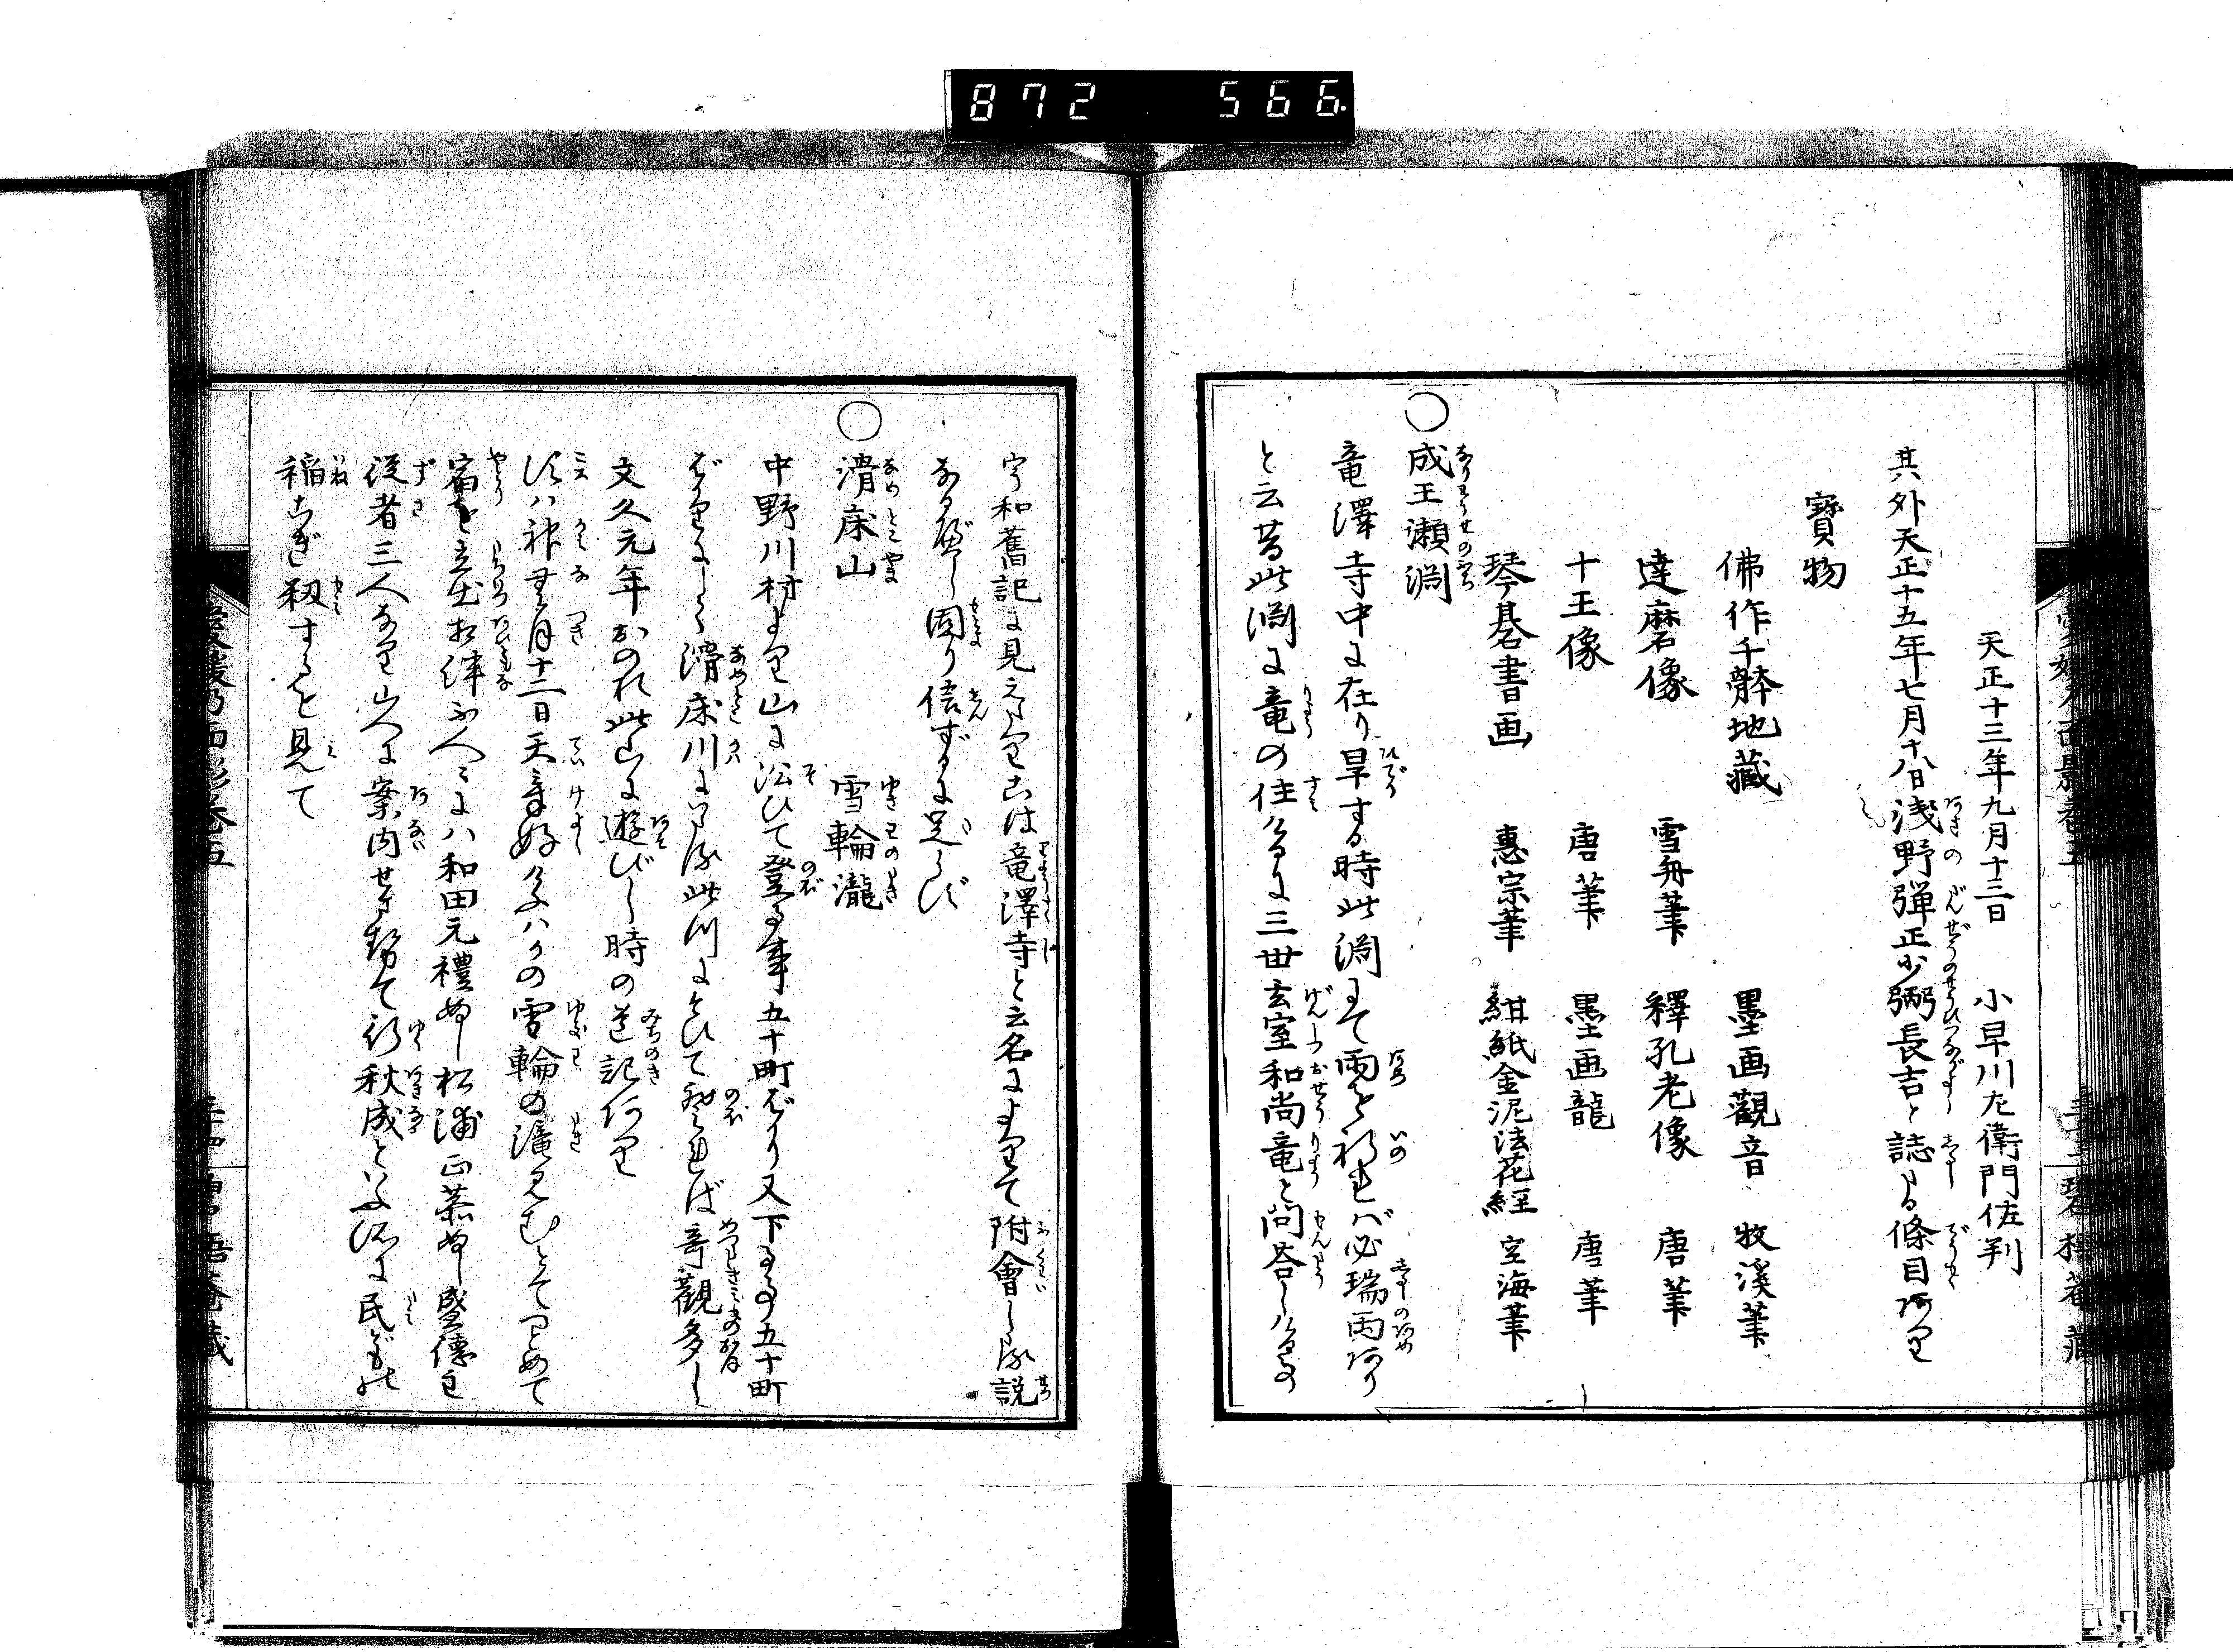 872 566
天正十三年九月十三日 小早川左衛門佐判
其外天正十五年七月十八日浅野弾正少弼長吉と誌る條目あり
寶物
佛作千躰地藏 墨画觀音 牧溪筆
達磨像 雪舟筆 釋孔老像 唐筆
十王像 唐筆 墨画龍 唐筆
琴碁書画 惠宗筆 紺紙金泥法花經 空海筆
○成王瀬淵
竜澤寺中に在り旱する時此淵にて雨を祈れバ必瑞雨あり
と云昔此淵に竜の住けるに三世玄室和尚竜と問答しける事
宇和舊記に見えたりこは竜澤寺と云名によりて附會したる説
なるべし固り信ずるに足らず
○滑床山 雪輪瀧
中野川村より山に沿ひて登る事五十町ばかり又下る事五十町
ばかりにして滑床川にいたる此川にそひて登れば奇觀多し
文久元年おのれ此山に遊びし時の道記あり
ハ神無月十二日天氣好けれハかの雪輪の瀧見むとてつとめて
宿を立出相伴ふ人々にハ和田元禮ぬし松浦正恭ぬし盛傳
從者三人なり山人に案内せさせて行秋成といふ所に民どもの
稲こぎ籾するを見て
愛媛乃面影卷五